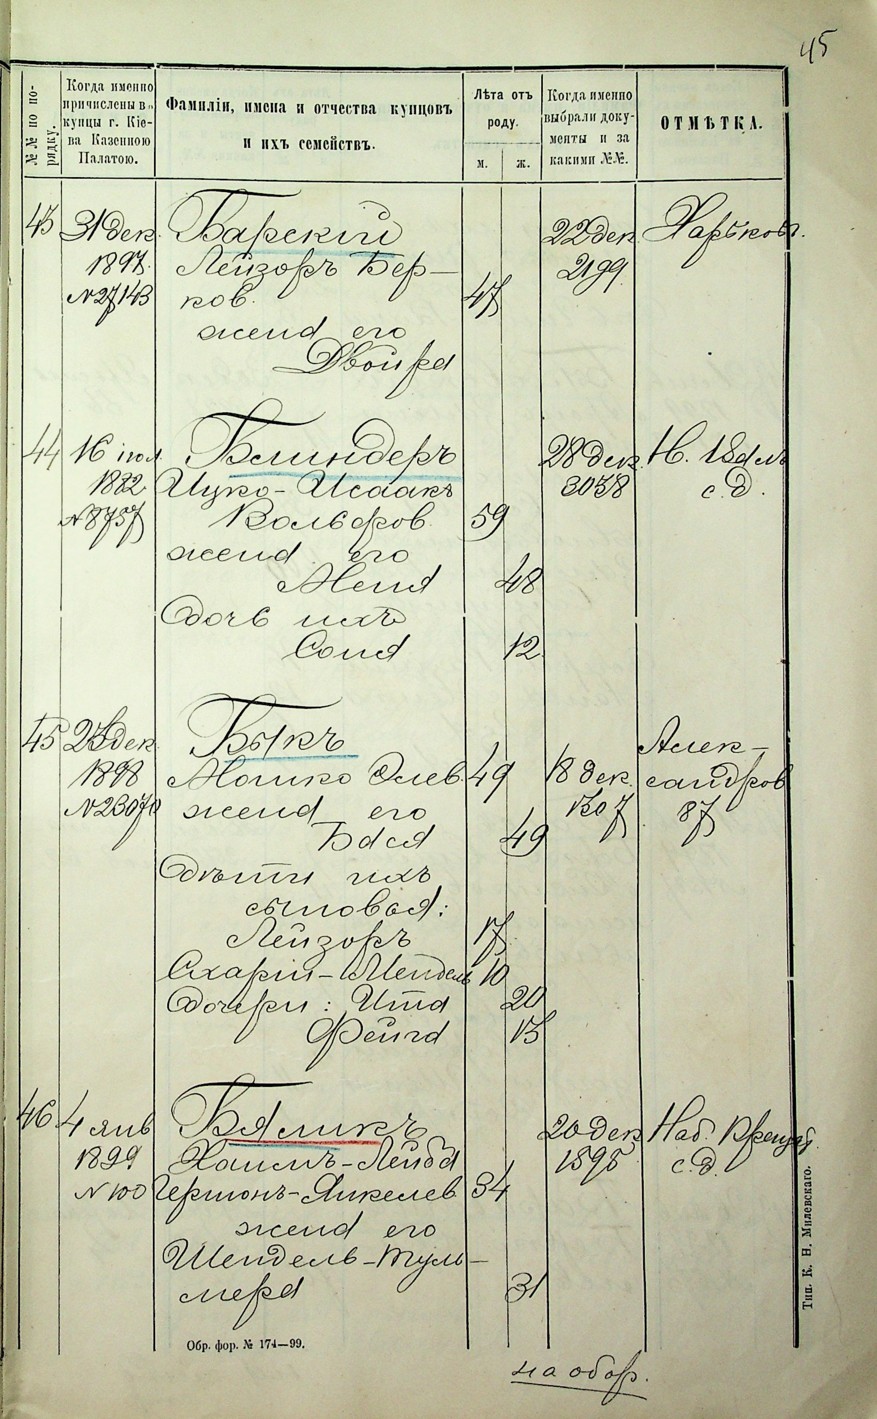 45
№№ по по-
рядку.
Когда именно
причислены въ
купцы г. Кіе-
ва Казенною
Палатою.
Фамиліи, имена и отчества купцовъ
и ихъ семействъ.
Лѣта отъ
роду.
м.
ж.
Когда именно
выбрали доку-
менты и за
какими №№.
ОТМѢТКА.
31 дек. Барскій 22 дек. Харьков.
1897. Лейзоръ Бер- 2199
№ 27143 ков. 47
жена его
Двойра
44 16 іюл. Блиндеръ 28 дек.
1882 Ицко-Исаакъ 3058 с.д.
№ 8757 Вольфов. 59
жена его
Хеня 48
дочь ихъ
Соня 12
45 23 дек. Быкъ Алек-
1898 Мошко Элев. 49 18 дек. сандров
№ 23070 жена его 1307 87
Бася 49
Дѣти ихъ
сыновья:
Лейзоръ 17
Схарія-Мендель 10
дочери: Ита 20
Фейга 13
46 4 янв Бяликъ 20 дек. Наб. Крещат.
1899 Хаимъ-Лейба 1595 с.д.
№ 100 Гершонъ-Янкелев 34
жена его
Шендель-
мера 31
Обр. фор. № 174—99.
на обор.
Тип. К. Н. Милевскаго.